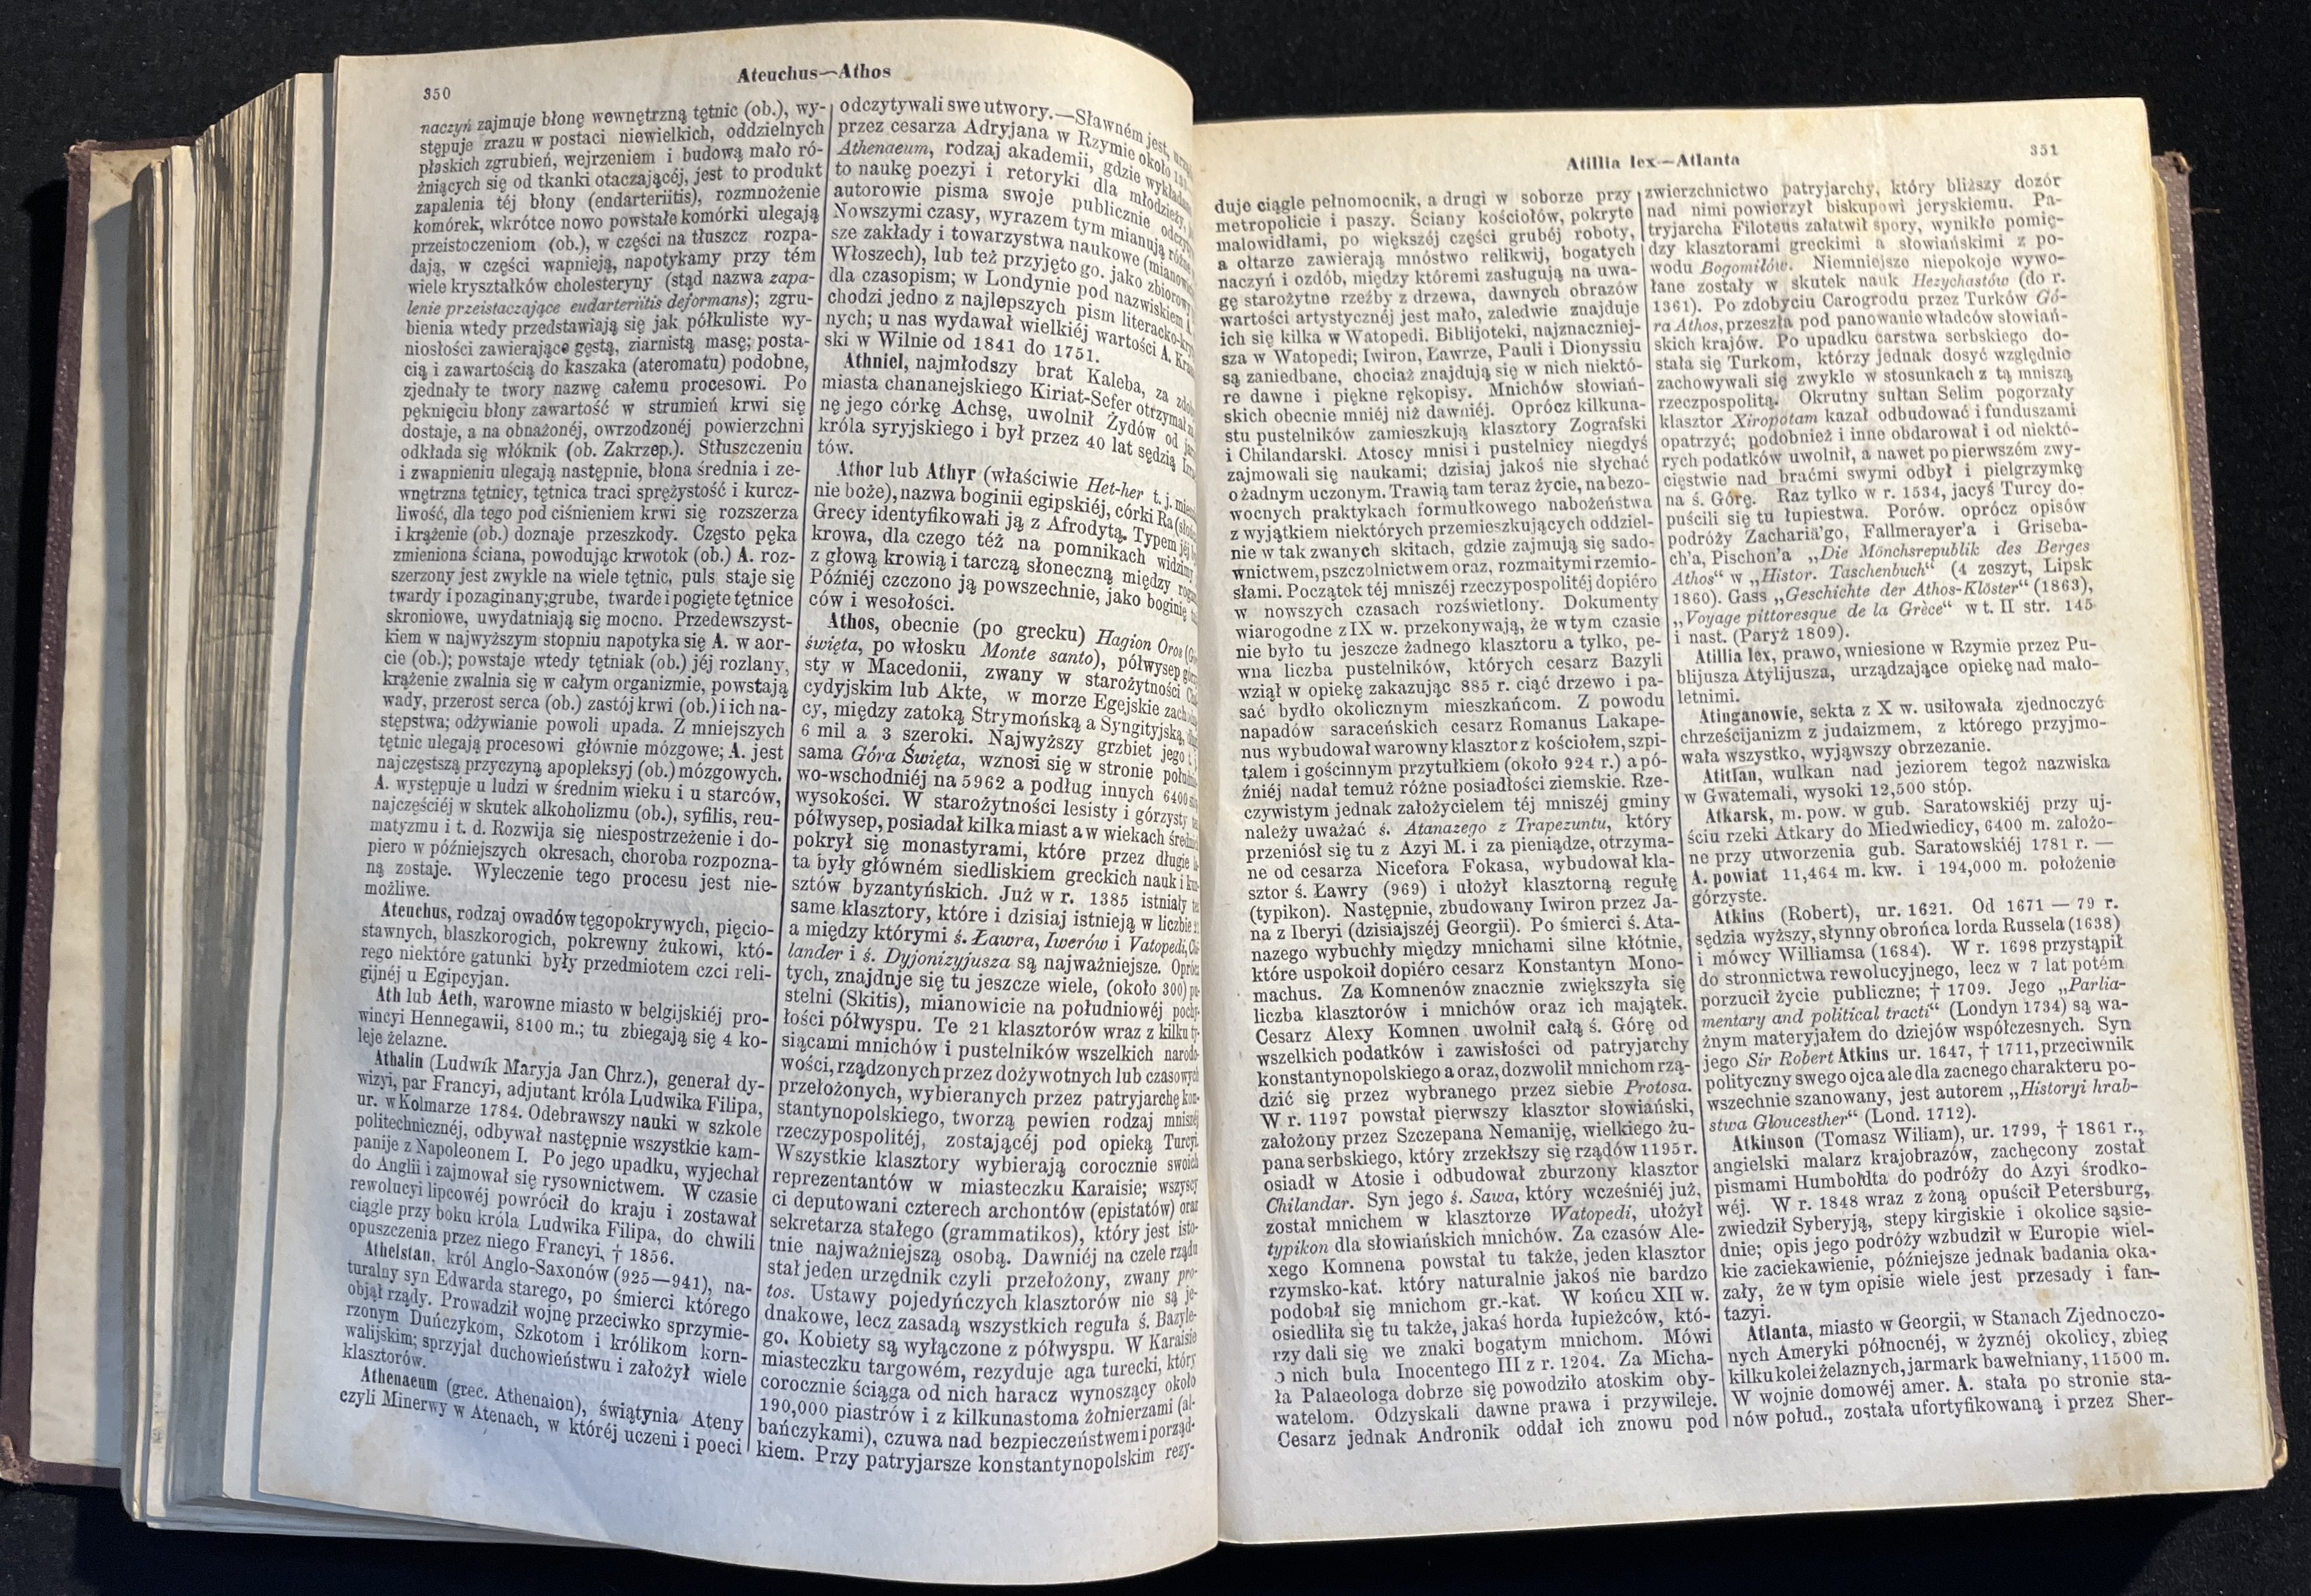 350
Ateuchus—Athos
naczyń zajmuje błonę wewnętrzną tętnic (ob.), wy-
stępuje zrazu w postaci niewielkich, oddzielnych
płaskich zgrubień, wejrzeniem i budową mało ró-
żniących się od tkanki otaczającéj, jest to produkt
zapalenia téj błony (endarteriitis), rozmnożenie
komórek, wkrótce nowo powstałe komórki ulegają
przeistoczeniom (ob.), w części na tłuszcz rozpa-
dają, w części wapnieją, napotykamy przy tém
wiele kryształków cholesteryny (stąd nazwa zapa-
lenie przeistaczające eudarteriitis deformans); zgru-
bienia wtedy przedstawiają się jak półkuliste wy-
niosłości zawierające gęstą, ziarnistą masę; posta-
cią i zawartością do kaszaka (ateromatu) podobne,
zjednały te twory nazwę całemu procesowi. Po
pęknięciu błony zawartość w strumień krwi się
dostaje, a na obnażonéj, owrzodzonéj powierzchni
odkłada się włóknik (ob. Zakrzep.). Stłuszczeniu
i zwapnieniu ulegają następnie, błona średnia i ze-
wnętrzna tętnicy, tętnica traci sprężystość i kurcz-
liwość, dla tego pod ciśnieniem krwi się rozszerza
i krążenie (ob.) doznaje przeszkody. Często pęka
zmieniona ściana, powodując krwotok (ob.) A. roz-
szerzony jest zwykle na wiele tętnic, puls staje się
twardy i pozaginany;grube, twarde i pogięte tętnice
skroniowe, uwydatniają się mocno. Przedewszyst-
kiem w najwyższym stopniu napotyka się A. w aor-
cie (ob.); powstaje wtedy tętniak (ob.) jéj rozlany,
krążenie zwalnia się w całym organizmie, powstają
wady, przerost serca (ob.) zastój krwi (ob.) i ich na-
stępstwa; odżywianie powoli upada. Z mniejszych
tętnic ulegają procesowi głównie mózgowe; A. jest
najczęstszą przyczyną apopleksyj (ob.) mózgowych.
A. występuje u ludzi w średnim wieku i u starców,
najczęściéj w skutek alkoholizmu (ob.), syfilis, reu-
matyzmu i t. d. Rozwija się niespostrzeżenie i do-
piero w późniejszych okresach, choroba rozpozna-
ną zostaje. Wyleczenie tego procesu jest nie-
możliwe.
Ateuchus, rodzaj owadów tęgopokrywych, pięcio-
stawnych, blaszkorogich, pokrewny żukowi, któ-
rego niektóre gatunki były przedmiotem czci reli-
gijnéj u Egipcyjan.
Ath lub Aeth, warowne miasto w belgijskiéj pro-
wincyi Hennegawii, 8100 m.; tu zbiegają się 4 ko-
leje żelazne.
Athalin (Ludwik Maryja Jan Chrz.), generał dy-
wizyi, par Francyi, adjutant króla Ludwika Filipa,
ur. w Kolmarze 1784. Odebrawszy nauki w szkole
politechnicznéj, odbywał następnie wszystkie kam-
panije z Napoleonem I. Po jego upadku, wyjechał
do Anglii i zajmował się rysownictwem. W czasie
rewolucyi lipcowéj powrócił do kraju i zostawał
ciągle przy boku króla Ludwika Filipa, do chwili
opuszczenia przez niego Francyi, † 1856.
Athelstan, król Anglo-Saxonów (925—941), na-
turalny syn Edwarda starego, po śmierci którego
objął rządy. Prowadził wojnę przeciwko sprzymie-
rzonym Duńczykom, Szkotom i królikom korn-
walijskim; sprzyjał duchowieństwu i założył wiele
klasztorów.
Athenaeum (grec. Athenaion), świątynia Ateny
czyli Minerwy w Atenach, w któréj uczeni i poeci
odczytywali swe utwory.—Sławném jest,
przez cesarza Adryjana w Rzymie około
Athenaeum, rodzaj akademii, gdzie
to naukę poezyi i retoryki dla młodzieży,
autorowie pisma swoje publicznie
Nowszymi czasy, wyrazem tym mianują różne
sze zakłady i towarzystwa naukowe
Włoszech), lub też przyjęto go. jako
dla czasopism; w Londynie pod nazwiskiem
chodzi jedno z najlepszych pism
nych; u nas wydawał wielkiéj wartości A.
ski w Wilnie od 1841 do 1751.
Athniel, najmłodszy brat Kaleba, za
miasta chananejskiego Kiriat-Sefer otrzymał
nę jego córkę Achsę, uwolnił Żydów od
króla syryjskiego i był przez 40 lat sędzią
tów.
Athor lub Athyr (właściwie Het-her t. j.
nie boże), nazwa boginii egipskiéj, córki Ra
Grecy identyfikowali ją z Afrodytą. Typem jéj
krowa, dla czego téż na pomnikach widzimy
z głową krowią i tarczą słoneczną między
Późniéj czczono ją powszechnie, jako boginię
ców i wesołości.
Athos, obecnie (po grecku) Hagion Oros
święta, po włosku Monte santo), półwysep
sty w Macedonii, zwany w starożytności
cydyjskim lub Akte, w morze Egejskie
cy, między zatoką Strymońską a Syngityjską,
6 mil a 3 szeroki. Najwyższy grzbiet jego
sama Góra Święta, wznosi się w stronie
wo-wschodniéj na 5962 a podług innych 6400
wysokości. W starożytności lesisty i górzysty
półwysep, posiadał kilka miast a w wiekach
pokrył się monastyrami, które przez długie
ta były główném siedliskiem greckich nauk i
sztów byzantyńskich. Już w r. 1385 istniały
same klasztory, które i dzisiaj istnieją w liczbie
a między którymi ś. Ławra, Iwerów i Vatopedi,
lander i ś. Dyjonizyjusza są najważniejsze. Oprócz
tych, znajduje się tu jeszcze wiele, (około 300) pu-
stelni (Skitis), mianowicie na południowéj pochy-
łości półwyspu. Te 21 klasztorów wraz z kilku ty-
siącami mnichów i pustelników wszelkich narodo-
wości, rządzonych przez dożywotnych lub czasowych
przełożonych, wybieranych przez patryjarchę kon-
stantynopolskiego, tworzą pewien rodzaj mniszéj
rzeczypospolitéj, zostającéj pod opieką Turcyi.
Wszystkie klasztory wybierają corocznie swoich
reprezentantów w miasteczku Karaisie; wszyscy
ci deputowani czterech archontów (epistatów) oraz
sekretarza stałego (grammatikos), który jest isto-
tnie najważniejszą osobą. Dawniéj na czele rządu
stał jeden urzędnik czyli przełożony, zwany pro-
tos. Ustawy pojedyńczych klasztorów nie są je-
dnakowe, lecz zasadą wszystkich reguła ś. Bazyle-
go. Kobiety są wyłączone z półwyspu. W Karaisie
miasteczku targowém, rezyduje aga turecki, który
corocznie ściąga od nich haracz wynoszący około
190,000 piastrów i z kilkunastoma żołnierzami (al-
bańczykami), czuwa nad bezpieczeństwem i porząd-
kiem. Przy patryjarsze konstantynopolskim rezy-
Atillia lex—Atlanta
351
duje ciągle pełnomocnik, a drugi w soborze przy
metropolicie i paszy. Ściany kościołów, pokryte
malowidłami, po większéj części grubéj roboty,
a ołtarze zawierają mnóstwo relikwij, bogatych
naczyń i ozdób, między któremi zasługują na uwa-
gę starożytne rzeźby z drzewa, dawnych obrazów
wartości artystycznéj jest mało, zaledwie znajduje
ich się kilka w Watopedi. Biblijoteki, najznaczniej-
sza w Watopedi; Iwiron, Ławrze, Pauli i Dionyssiu
są zaniedbane, chociaż znajdują się w nich niektó-
re dawne i piękne rękopisy. Mnichów słowiań-
skich obecnie mniéj niż dawniéj. Oprócz kilkuna-
stu pustelników zamieszkują klasztory Zografski
i Chilandarski. Atoscy mnisi i pustelnicy niegdyś
zajmowali się naukami; dzisiaj jakoś nie słychać
o żadnym uczonym. Trawią tam teraz życie, na bezo-
wocnych praktykach formułkowego nabożeństwa
z wyjątkiem niektórych przemieszkujących oddziel-
nie w tak zwanych skitach, gdzie zajmują się sado-
wnictwem, pszczolnictwem oraz, rozmaitymi rzemio-
słami. Początek téj mniszéj rzeczypospolitéj dopiéro
w nowszych czasach rozświetlony. Dokumenty
wiarogodne z IX w. przekonywają, że w tym czasie
nie było tu jeszcze żadnego klasztoru a tylko, pe-
wna liczba pustelników, których cesarz Bazyli
wziął w opiekę zakazując 885 r. ciąć drzewo i pa-
sać bydło okolicznym mieszkańcom. Z powodu
napadów saraceńskich cesarz Romanus Lakape-
nus wybudował warowny klasztor z kościołem, szpi-
talem i gościnnym przytułkiem (około 924 r.) a pó-
źniéj nadał temuż różne posiadłości ziemskie. Rze-
czywistym jednak założycielem téj mniszéj gminy
należy uważać ś. Atanazego z Trapezuntu, który
przeniósł się tu z Azyi M. i za pieniądze, otrzyma-
ne od cesarza Nicefora Fokasa, wybudował kla-
sztor ś. Ławry (969) i ułożył klasztorną regułę
(typikon). Następnie, zbudowany Iwiron przez Ja-
na z Iberyi (dzisiajszéj Georgii). Po śmierci ś. Ata-
nazego wybuchły między mnichami silne kłótnie,
które uspokoił dopiéro cesarz Konstantyn Mono-
machus. Za Komnenów znacznie zwiększyła się
liczba klasztorów i mnichów oraz ich majątek.
Cesarz Alexy Komnen uwolnił całą ś. Górę od
wszelkich podatków i zawisłości od patryjarchy
konstantynopolskiego a oraz, dozwolił mnichom rzą-
dzić się przez wybranego przez siebie Protosa.
W r. 1197 powstał pierwszy klasztor słowiański,
założony przez Szczepana Nemaniję, wielkiego żu-
pana serbskiego, który zrzekłszy się rządów 1195 r.
osiadł w Atosie i odbudował zburzony klasztor
Chilandar. Syn jego ś. Sawa, który wcześniéj już,
został mnichem w klasztorze Watopedi, ułożył
typikon dla słowiańskich mnichów. Za czasów Ale-
xego Komnena powstał tu także, jeden klasztor
rzymsko-kat. który naturalnie jakoś nie bardzo
podobał się mnichom gr.-kat. W końcu XII w.
osiedliła się tu także, jakaś horda łupieżców, któ-
rzy dali się we znaki bogatym mnichom. Mówi
o nich bula Inocentego III z r. 1204. Za Micha-
ła Palaeologa dobrze się powodziło atoskim oby-
watelom. Odzyskali dawne prawa i przywileje.
Cesarz jednak Andronik oddał ich znowu pod
zwierzchnictwo patryjarchy, który bliższy dozór
nad nimi powierzył biskupowi jeryskiemu. Pa-
tryjarcha Filoteus załatwił spory, wynikłe pomię-
dzy klasztorami greckimi a słowiańskimi z po-
wodu Bogomiłów. Niemniejsze niepokoje wywo-
łane zostały w skutek nauk Hezychastów (do r.
1361). Po zdobyciu Carogrodu przez Turków Gó-
ra Athos, przeszła pod panowanie władców słowiań-
skich krajów. Po upadku carstwa serbskiego do-
stała się Turkom, którzy jednak dosyć względnie
zachowywali się zwykle w stosunkach z tą mniszą
rzeczpospolitą. Okrutny sułtan Selim pogorzały
klasztor Xiropotam kazał odbudować i funduszami
opatrzyć; podobnież i inne obdarował i od niektó-
rych podatków uwolnił, a nawet po pierwszém zwy-
cięstwie nad braćmi swymi odbył i pielgrzymkę
na ś. Górę. Raz tylko w r. 1534, jacyś Turcy do-
puścili się tu łupiestwa. Porów. oprócz opisów
podróży Zacharia'go, Fallmerayer'a i Griseba-
ch'a, Pischon'a „Die Mönchsrepublik des Berges
Athos“ w „Histor. Taschenbuch“ (4 zeszyt, Lipsk
1860). Gass „Geschichte der Athos-Klöster“ (1863),
„Voyage pittoresque de la Grèce“ w t. II str. 145
i nast. (Paryż 1809).
Atillia lex, prawo, wniesione w Rzymie przez Pu-
blijusza Atylijusza, urządzające opiekę nad mało-
letnimi.
Atinganowie, sekta z X w. usiłowała zjednoczyć
chrześcijanizm z judaizmem, z którego przyjmo-
wała wszystko, wyjąwszy obrzezanie.
Atitlan, wulkan nad jeziorem tegoż nazwiska
w Gwatemali, wysoki 12,500 stóp.
Atkarsk, m. pow. w gub. Saratowskiéj przy uj-
ściu rzeki Atkary do Miedwiedicy, 6400 m. założo-
ne przy utworzenia gub. Saratowskiéj 1781 r. —
A. powiat 11,464 m. kw. i 194,000 m. położenie
górzyste.
Atkins (Robert), ur. 1621. Od 1671 — 79 r.
sędzia wyższy, słynny obrońca lorda Russela (1638)
i mówcy Williamsa (1684). W r. 1698 przystąpił
do stronnictwa rewolucyjnego, lecz w 7 lat potém
porzucił życie publiczne; † 1709. Jego „Parlia-
mentary and political tracti“ (Londyn 1734) są wa-
żnym materyjałem do dziejów współczesnych. Syn
jego Sir Robert Atkins ur. 1647, † 1711, przeciwnik
polityczny swego ojca ale dla zacnego charakteru po-
wszechnie szanowany, jest autorem „Historyi hrab-
stwa Gloucesther“ (Lond. 1712).
Atkinson (Tomasz Wiliam), ur. 1799, † 1861 r.,
angielski malarz krajobrazów, zachęcony został
pismami Humboldta do podróży do Azyi środko-
wéj. W r. 1848 wraz z żoną opuścił Petersburg,
zwiedził Syberyją, stepy kirgiskie i okolice sąsie-
dnie; opis jego podróży wzbudził w Europie wiel-
kie zaciekawienie, późniejsze jednak badania oka-
zały, że w tym opisie wiele jest przesady i fan-
tazyi.
Atlanta, miasto w Georgii, w Stanach Zjednoczo-
nych Ameryki północnéj, w żyznéj okolicy, zbieg
kilku kolei żelaznych, jarmark bawełniany, 11500 m.
W wojnie domowéj amer. A. stała po stronie sta-
nów połud., została ufortyfikowaną i przez Sher-